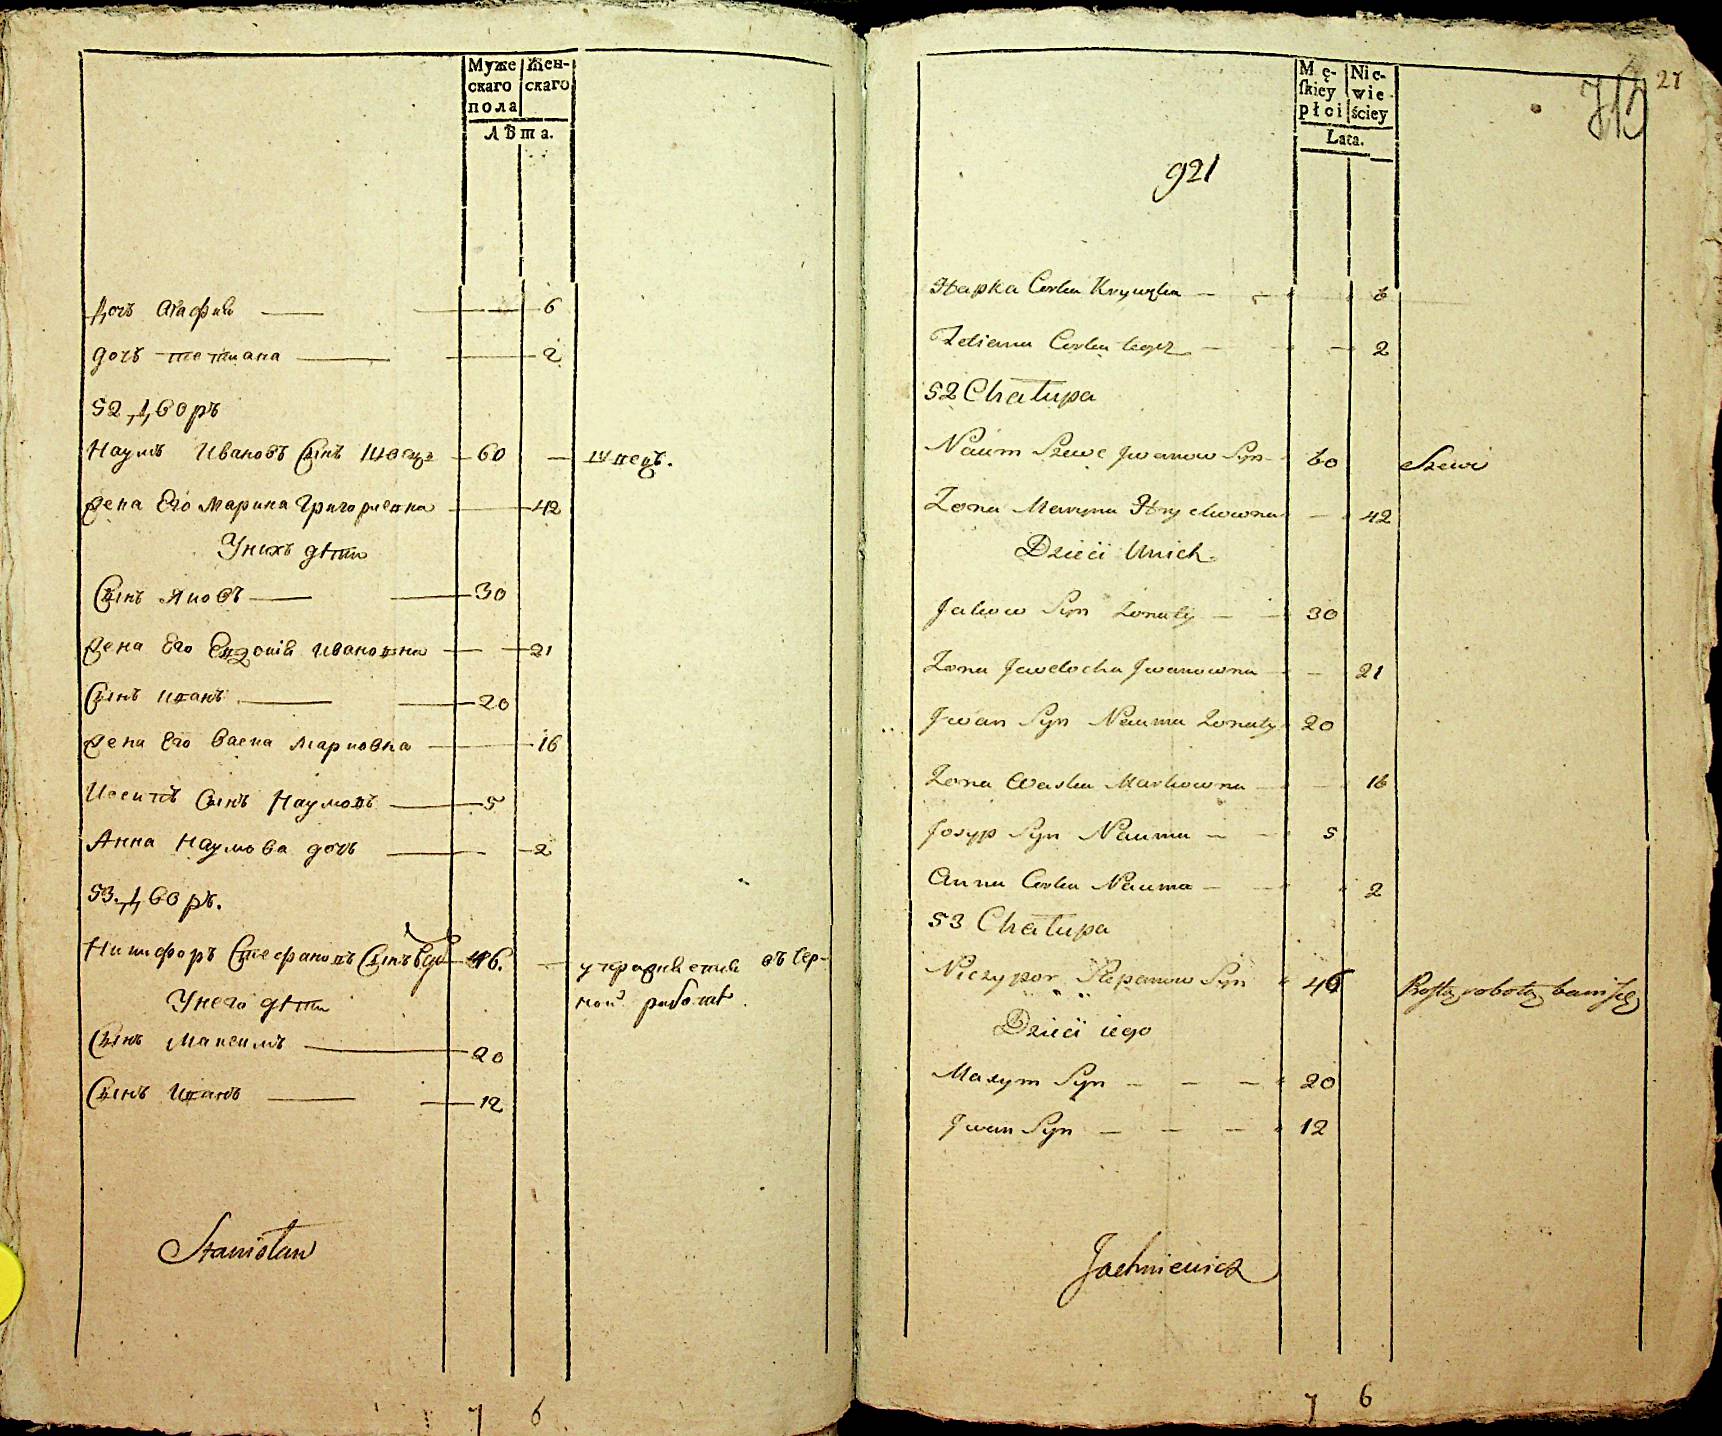 Муже Жен-
скаго скаго
пола
Лѣта.
дочь Агафия 6
дочь тетиана 2
52 Дворъ
Наумъ Ивановъ Сынъ Швецъ 60 швецъ.
Жена Его Марина Григориевна 42
У нихъ дѣти
Сынъ Яковъ 30
Жена Его Евдокія Ивановна 21
Сынъ Иванъ 20
Жена Его Васка Марковна 16
Иосипъ Сынъ Наумовъ 5
Анна Наумова дочь 2
53. Дворъ.
Никифоръ Стефановъ Сынъ Вдо 46. упражняется въ чер-
ной работѣ.
У него дѣти
Сынъ Максимъ 20
Сынъ Иванъ 12
Stanisław
7 6
27
713
Mę- Nie-
ſkiey wie-
płci ściey
Lata.
921
Hapka Corka 6
Tetiana Corka tegoż 2
52 Chałupa
Naum Szewc Jwanow Syn 60 Szewc
Żona Maryna Hryckowna 42
Dzieci U nich
Jakow Syn żonaty 30
Żona Jewdocha Jwanowna 21
Jwan Syn Nauma Żonaty 20
Żona Waska Markowna 16
Josyp Syn Nauma 5
Anna Corka Nauma 2
53 Chałupa
Niczypor Stepanow Syn 46 Prostą robotą bawi się
Dzieci iego
Maxym Syn 20
Jwan Syn 12
Jachniewicz
7 6